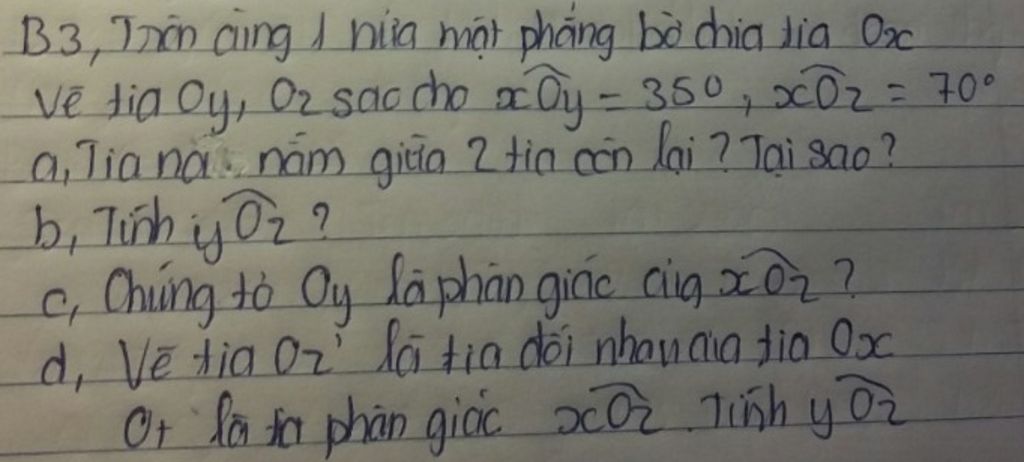 B3, Trên cùng 1 nửa mặt phẳng bờ chứa tia Ox
Vẽ tia Oy, Oz sao cho xOy = 350, xOz = 70°
a, Tia nà nằm giữa 2 tia còn lại? Tại sao?
b, Tính yOz?
c, Chứng tỏ Oy là phân giác của xOz?
d, Vẽ tia Oz' là tia đối nhau của tia Ox
Ot là tia phân giác xOz. Tính yOz